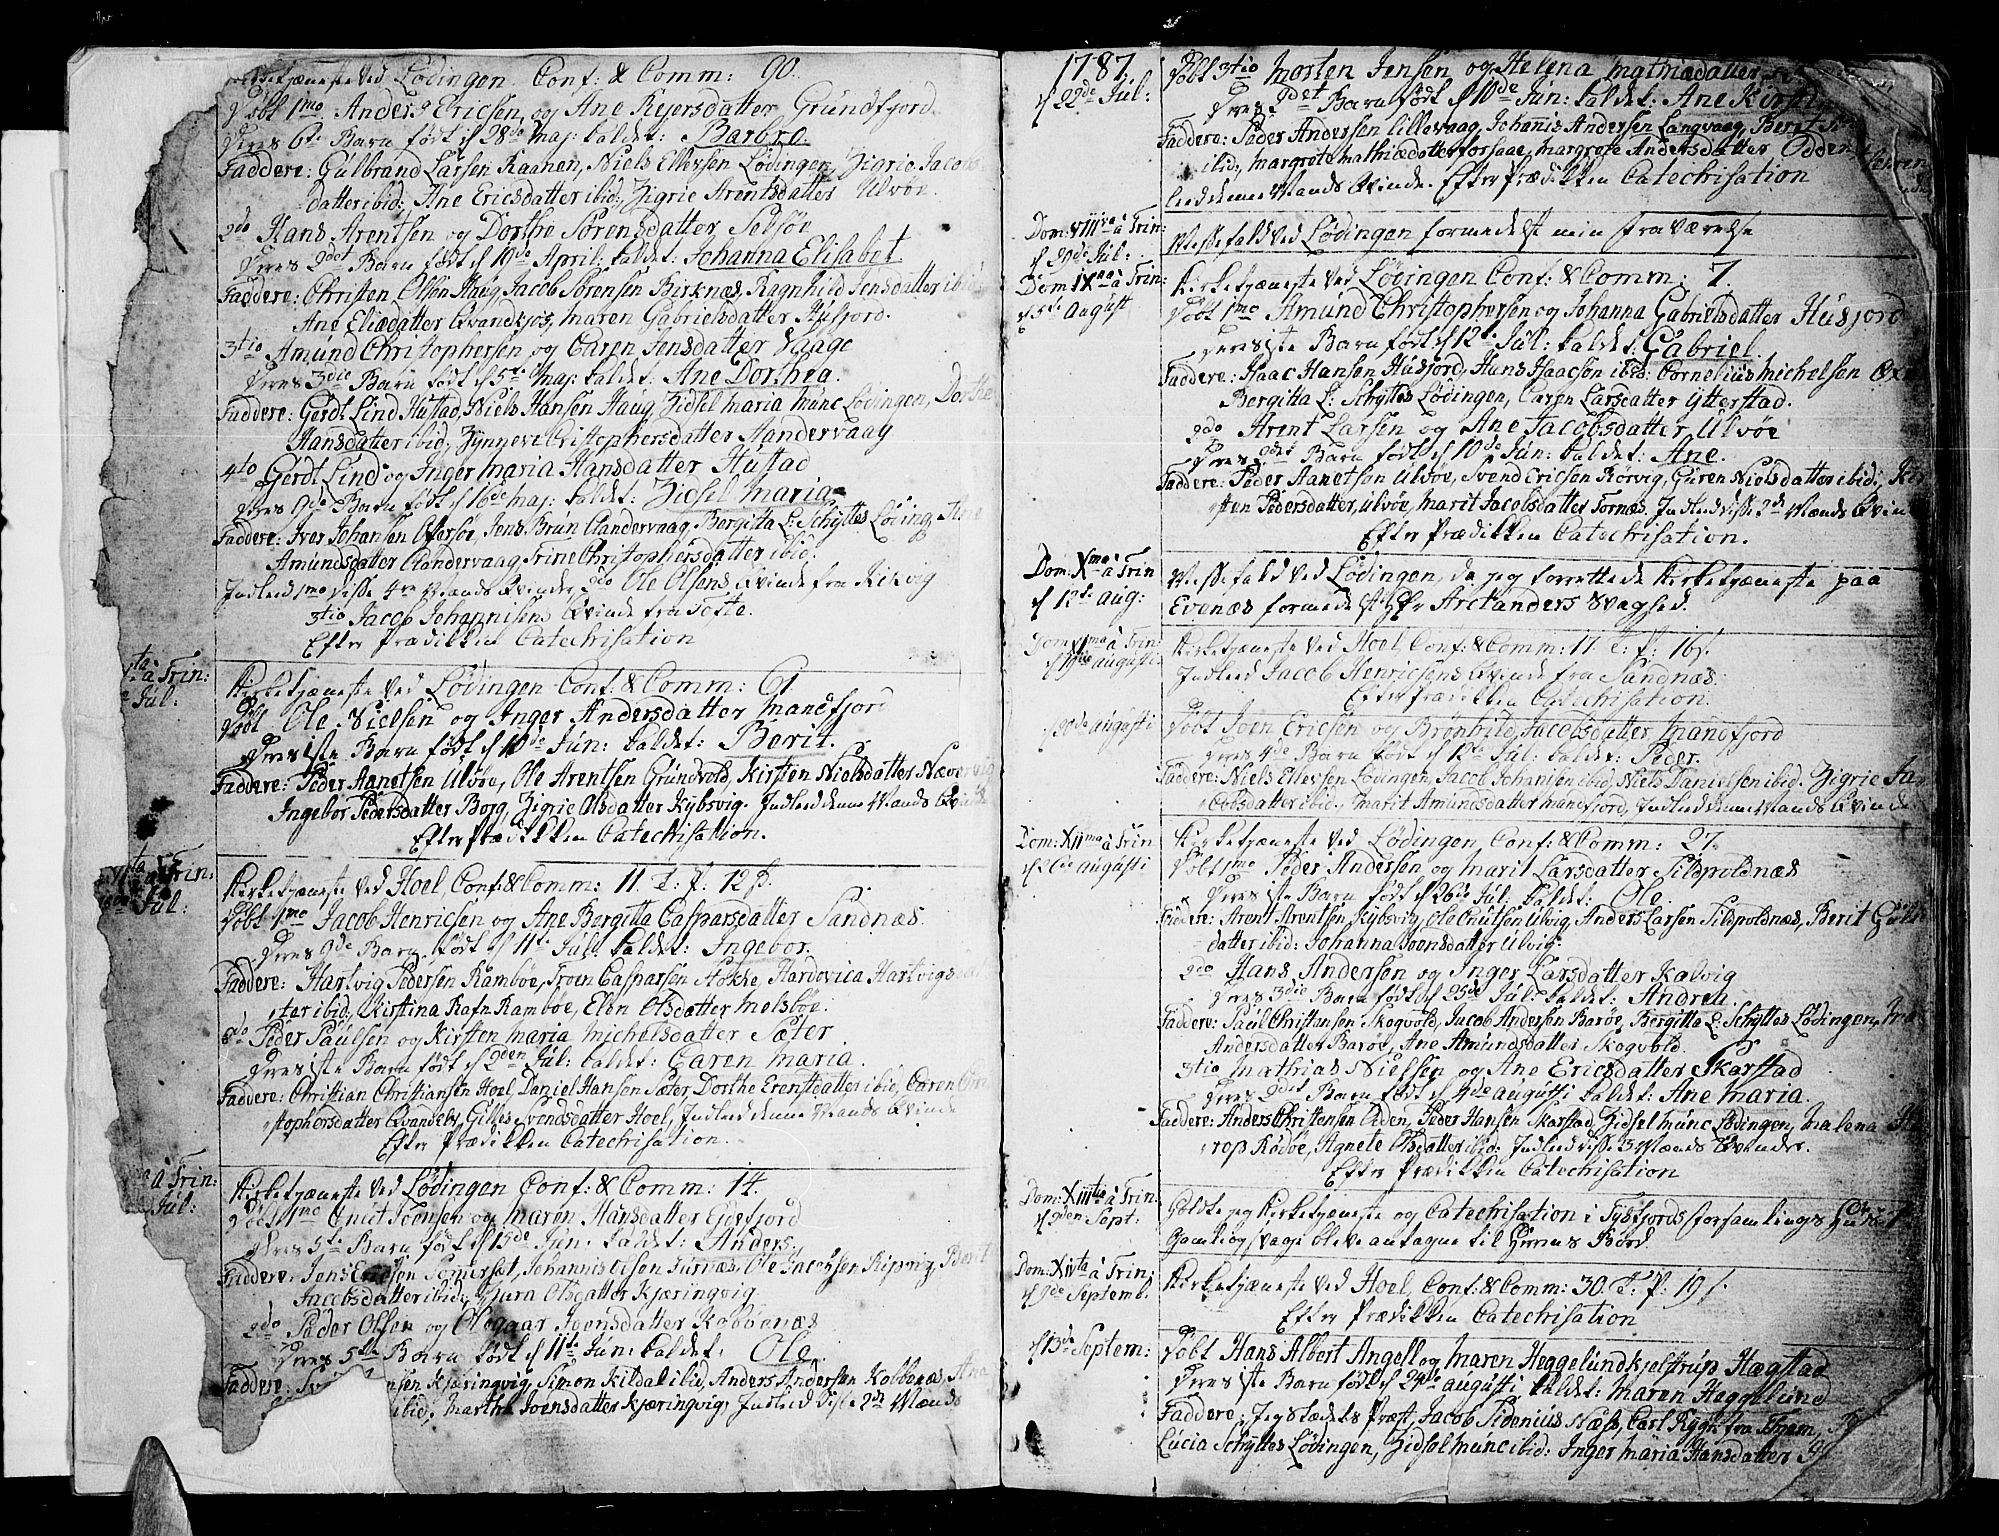 Kirketjæneste ved Lødingen Conf: & Comm: 90.
Døbt 1mo Anders Ericsen, og Ane Rejersdatter Grundfjord
Deres 6te Barn født d 28de Maj: kaldet: Barbro.
Faddere: Gulbrand Larsen Raanen, Niels Ellevsen Lødingen, Zigrie Jacobs
datter ibid: Ane Ericsdatter ibid: Zigrie Arentsdatter Ulvøe.
2do Hans Arentsen og Dorthe Sørensdatter Selsøe
Deres 2det Barn født d 19de April: kaldet: Johanna Elisabet.
Faddere: Christen Olsen Haug, Jacob Sørensen Birknæs, Ragnhild Jensdatter ibid:
Ane Eliædatter Qvandkjos, Maren Gabrielsdatter Husfjord.
3tio Amund Christophersen og Caren Jensdatter Vaage
Deres 3die Barn født d 5te Maj: kaldet: Ane Dorthea.
Faddere: Gerdt Lind Hustad, Niels Hansen Haug, Zidsel Maria Munc Lødingen, Dorthe
Hansdatter ibid: Zynneve Cristophersdatter Handervaag
4to Gerdt Lind og Inger Maria Hansdatter Hustad
Deres Barn født d 16de Maj: kaldet: Zidsel Maria
Faddere: Iver Johansen Offersøe, Jens Brun Clandervaag, Bergitta L: Schyttes Løding,
Amundsdatter Clandervaag, Trine Christophersdatter ibid:
Indleed 1mo disse 4re Mands Qvinder, 2do Ole Olsens Qvinde fra Kilvig
3tio Jacob Johannisens Qvinde fra Tofte.
Efter Prædikken Catechisation
ta a Trin: Kirketjæneste ved Lødingen Conf: & Comm: 61
Jul: Døbt Ole Nielsen og Inger Andersdatter Mandfjord
Deres 1ste Barn født d 10de Jun: kaldet: Berit.
Faddere: Peder Aanetsen Ulvøe, Ole Arentsen Grundvold, Kirsten Nielsdatter Nævervig
Ingebor Pedersdatter Borg, Zigrie Olsdatter Kybsvig. Indleed denne Mands Qvinde
Efter Prædikken Catechisation.
a Trin: Kirketjæneste ved Hoel, Conf: & Comm: 11. T: f: 12 s.
Jul: Døbt 1mo Jacob Henricsen og Ane Bergitta Caspersdatter Sandnæs
Deres 2de Barn født d 11te Jul: kaldet: Ingebor.
Faddere: Hartvig Pedersen Ramboe, Troen Caspersen Fokke, Hardovica Hartvigsdat
ter ibid: Kirstina Rafn Ramboe, Elen Olsdatter Melsboe.
2do Peder Paulsen og Kirsten Maria Michelsdatter Sæter
Deres 1ste Barn født d 2den Jul: kaldet: Caren Maria.
Faddere: Christian Christiansen Hoel, Daniel Hansen Sæter, Dorthe Erentsdatter ibid: Caren Chri
stophersdatter Qvandeby, Gilles Svendsdatter Hoel, Indleed denne Mands Qvinde
Efter Prædikken Catechisation.
a Trin: Kirketjæneste ved Lødingen Conf: & Comm: 14.
Jul: Døbt 1mo Cnut Joensen og Maren Hansdatter Ejdefjord
Deres 5te Barn født d 15de Jun: kaldet: Anders.
Faddere: Jens Ericsen Somerset, Johannis Olsen Furnæs, Ole Jacobsen Kipsvig, Berit
Jacobsdatter ibid: Guru Olsdatter Kjæringvig
2do Peder Olsen og Ologaar Joensdatter Kobbenæs
Deres 5te Barn født d 11te Jun: kaldet: Ole.
Faddere: Kjæringvig, Simon Kildal ibid, Anders Andersen Kobbenæs,
ibid, Martha Joensdatter Kjæringvig, Indleed disse 2de Mænds
1787 Døbt 3tio Morten Jensen og Helena Mathiædatter
d 22de Jul: Deres 2det Barn født d 10de Jun: kaldet: Ane Kirst
Faddere: Peder Andersen Lillevaag, Johanis Andersen Langvaag, Berit
ibid: Margrete Mathiædatter Forsaae, Margrete Andersdatter Odden
leed denne Mands Qvinde. Efter Prædikken Catechisation
Dom: VIIIva a Trin: Messefald ved Lødingen formedelst min fraværelse
d 29de Jul:
Dom: IXna a Trin: Kirketjæneste ved Lødingen Conf: & Comm: 7.
d 5te Augusti Døbt 1mo Amund Christophersen og Johanna Gabrielsdatter Husjord
Deres 1ste Barn født d 12te Jul: kaldet: Gabriel.
Faddere: Isaac Hansen Husjord, Hans Isaacsen ibid: Cornelius Michelsen
Bergitta L: Schyttes Lødingen, Caren Larsdatter Ytterstad.
2do Arent Larsen og Ane Jacobsdatter Ulvøe
Deres 2det Barn født d 10de Jun: kaldet: Ane.
Faddere: Peder Aanetsen Ulvøe, Svend Ericsen Rørvig, Guren Nielsdatter ibid: Kir
sten Pedersdatter Ulvøe, Marit Jacobsdatter Fornæs. Indleed disse 2de Mænds Qvin
Efter Prædikken Catechisation.
Dom: Xma a Trin Messefald ved Lødingen, da jeg forrettede Kirketjæneste paa
d 12te Aug: Evenæs formedelst Hr Arctanders Svaghed.
Dom: XIma a Trin: Kirketjæneste ved Hoel Conf: & Comm: 11. T: f: 16 s.
d 19de Augusti Indleed Jacob Henricsens Qvinde fra Sandnæs.
Efter Prædikken Catechisation.
d 20de Augusti Døbt Joen Ericsen og Brønhild Jacobsdatter Mandfjord
Deres 4de Barn født d 12te Jul: kaldet: Peder.
Faddere: Niels Ellevsen Lødingen, Jacob Johansen ibid, Niels Danielsen ibid. Zigrie Ja
cobsdatter ibid: Marit Amundsdatter Mandfjord, Indleed denne Mands Qvinde
Dom: XIIma a Trin Kirketjæneste ved Lødingen, Conf: & Comm: 27.
d 26de Augusti Døbt 1mo Peder Andersen og Marit Larsdatter Sildpoldnæs
Deres 1ste Barn født d 26de Jul: kaldet: Ole.
Faddere: Arent Arentsen Kybsvig, Ola Cnutsen Ulvig, Anders Larsen Sildpoldnæs, Berit Guld
datter ibid: Johanna Joensdatter Ulvig.
2do Hans Andersen og Inger Larsdatter Kalvig
Deres 3die Barn født d 25de Jul: kaldet: Andrea.
Faddere: Paul Christansen Skogvold, Jacob Andersen Barøe, Bergitta L: Schyttes Lødingen,
Andersdatter Barøe, Ane Amundsdatter Skogvold.
3tio Mathias Nielsen og Ane Ericsdatter Skarstad
Deres 2det Barn født d 4de Augusti kaldet: Ane Maria.
Faddere: Anders Christensen Leden, Peder Hansen Skarstad, Zidsel Munc Lødingen, Malena
rop Rødøe, Agnete Olsdatter ibid: Indleed disse 3 Mænds Qvinder.
Efter Prædikken Catechisation
Dom: XIIItia a Trin. Holdte jeg Kirketjæneste og Catechisation i Tysfjords forsamlings Huus
d 2den Sept: Gamle og svage bleve antagne til Herrens Bord.
Dom: XIVta a Trin: Kirketjæneste ved Hoel, Conf: & Comm: 30. T: f: 19 s.
d 9de Septemb: Efter Prædikken Catechisation
d 13de Septem: Døbt Hans Albert Angell og Maren Heggelund Kjeltrup Hægstad
Deres 1ste Barn født d 24de Augusti kaldet: Maren Heggelund
Faddere: Jeg Stædets Præst, Jacob Sidenius Næss, Carl Rygh fra Thjem,
Lucia Schyttes Lødingen, Zidsel Munc ibid: Inger Maria Hansdatter